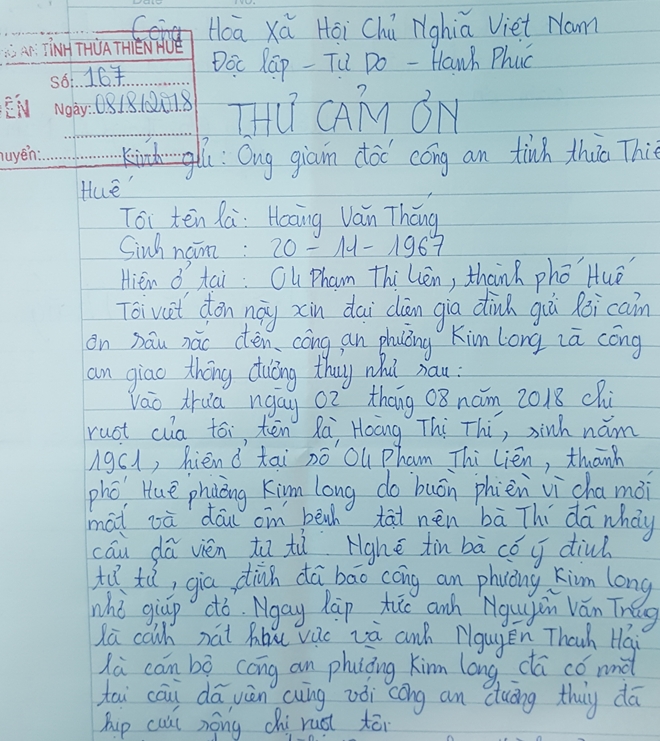 Cộng Hoà Xã Hội Chủ Nghĩa Việt Nam
Độc lập - Tự Do - Hạnh Phúc
AN TỈNH THỪA THIÊN HUẾ
Số: 167
ĐẾN
Ngày: 08/8/2018
huyển:
THƯ CẢM ƠN
Kính gửi: Ông giám đốc công an tỉnh thừa Thiê
Huế
Tôi tên là: Hoàng Văn Thắng
Sinh năm : 20 - 11 - 1967
Hiện ở tại : 04 Phạm Thị Liên, thành phố Huế
Tôi viết đơn này xin đại diện gia đình gửi lời cảm
ơn sâu sắc đến công an phường Kim Long và công
an giao thông đường thuỷ như sau:
Vào trưa ngày 02 tháng 08 năm 2018 chị
ruột của tôi tên là Hoàng Thị Thí, sinh năm
1961, hiện ở tại số 04 Phạm Thị Liên, thành
phố Huế phường Kim Long do buồn phiền vì cha mới
mất và đau ốm bệnh tật nên bà Thí đã nhảy
cầu dã viên tự tử. Nghe tin bà có ý định
tự tử, gia đình đã báo công an phường Kim Long
nhờ giúp đỡ. Ngay lập tức anh Nguyễn Văn Trung
là cảnh sát khu vực và anh Nguyễn Thanh Hải
là cán bộ công an phường Kim Long đã có mặt
tại cầu dã viên cùng với công an đường thủy đã
kịp cứu sống chị ruột tôi